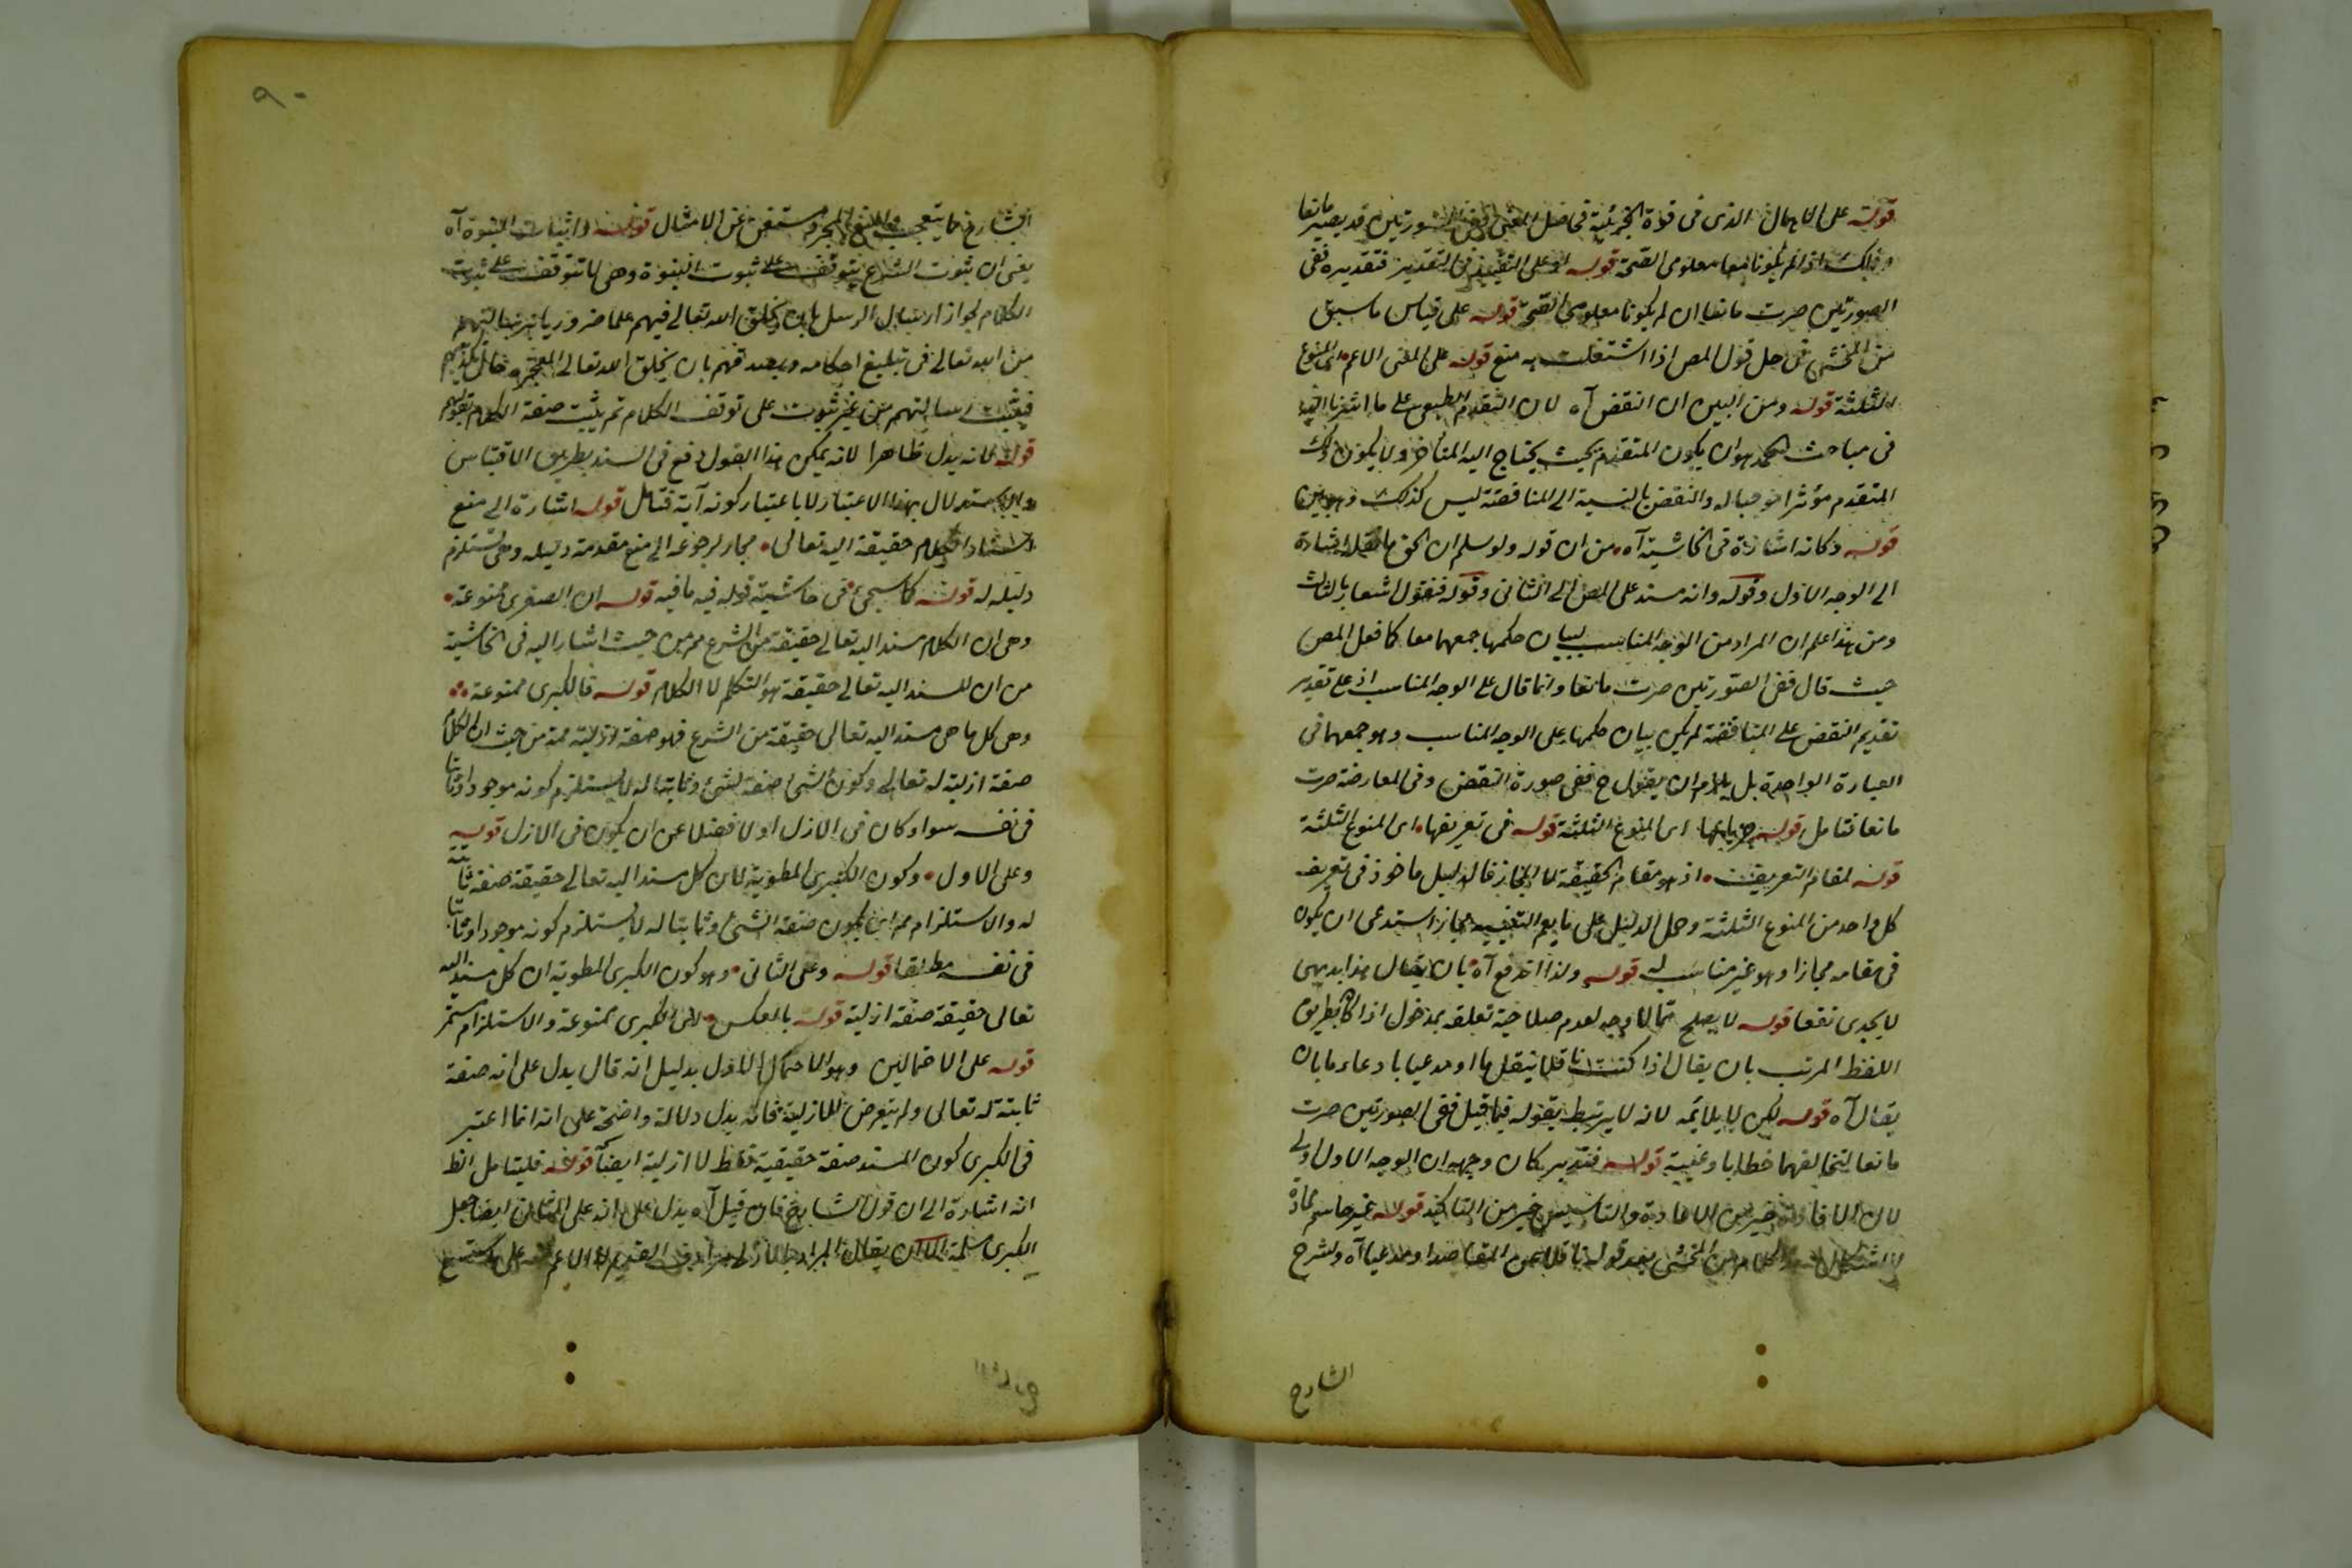 قوله على الاهمال الذى فى قوة الجزئية فحاصل المعنى ففى الصورتين قد يصير مانعا
وذلك اذا لم يكونا معا معلومى الصحة قوله او على التقييد فى التقدير فتقديره ففى
الصورتين صرت مانعا ان لم يكونا معلومى الصحة قوله على قياس ما سبق
من المحشى فى حل قول المص اذا اشتغلت به منع قوله على المعنى الاعم اى المنوع
الثلثة قوله ومن البين ان النقض آه لان التقدم الطبيعى على ما اشرنا اليه
فى مباحث الحمد هو ان يكون المتقدم بحيث يحتاج اليه المتأخر ولا يكون ذلك
المتقدم مؤثرا موجبا له والنقض بالنسبة الى المناقضة ليس كذلك وهو بين
قوله وكانه اشارة فى الحاشية آه من ان قوله ولو سلم ان الحق اشارة
الى الوجه الاول وقوله وانه سند على المص الى الثانى وقوله فنقول اشعار بالثالث
ومن هذا علم ان المراد من الوجه المناسب لبيان حكمها جمعهما معا كما فعل المص
حيث قال ففى الصورتين صرت مانعا وانما قال على الوجه المناسب اذ على تقدير
تقديم النقض على المناقضة لم يكن بيان حكمها على الوجه المناسب وهو جمعهما فى
العبارة الواحدة بل يلزم ان يقول ح ففى صورة النقض وفى المعارضة صرت
مانعا تأمل قوله جريانها اى المنوع الثلثة قوله فى تعريفها اى المنوع الثلثة
قوله لمقام التعريف اذ هو مقام الحقيقة لا المجاز فالدليل ماخوذ فى تعريف
كل واحد من المنوع الثلثة وحمل الدليل على ما يعم التنبيه مجاز استدعى ان يكون
فى مقامه مجازا وهو غير مناسب له قوله ولذا اندفع آه بان يقال هذا بديهى
لا يجدى نفعا قوله لا يصلح لما لا وجه لعدم صلاحية تعلقه بمدخول اذا كا بطريق
اللفظ المرتب بان يقال اذا كنت ناقلا بنقلها او مدعيا بادعاءها بان
يقال آه قوله لكن لا يلائمه لانه لا يرتبط بقوله فيما قبل ففى الصورتين صرت
مانعا لتخالفهما خطابا وغيبة قوله فتدبر كان وجهه ان الوجه الاول اولى
لان الافادة خير من الاعادة والتاسيس خير من التاكيد قوله غير حاسم لمادة
الاشكال الكلام من المحشى بعد قوله ناقلا عن المقاصد او مدعيا آه ولشرح
الشارح
الشارح مما يتعجب المنع المجرد مستغن عن الامثال قوله واثبات النبوة آه
يعنى ان ثبوت الشرع يتوقف على ثبوت النبوة وهى لا تتوقف على ثبوت
الكلام لجواز ارسال الرسل بان يخلق الله تعالى فيهم علما ضروريا برسالتهم
من الله تعالى فى تبليغ احكامه ويصدقهم بان يخلق الله تعالى المعجزة حال تحديهم
فيثبت رسالتهم من غير ثبوت على توقف الكلام ثم يثبت صفة الكلام بقولهم
قوله لانه يدل ظاهرا لانه يمكن هذا القول وقع فى السند بطريق الاقتباس
والاستدلال بهذا الاعتبار لا باعتبار كونه آية فتأمل قوله اشارة الى منع
استناد الكلام حقيقة اليه تعالى مجاز لرجوعه الى منع مقدمة دليله وهى تستلزم
دليله له قوله كما سيجئ فى حاشية قوله فيه ما فيه قوله ان الصغرى ممنوعة
وهى ان الكلام مسند اليه تعالى حقيقة من الشرع مم من حيث اشار اليه فى الحاشية
من ان المسند اليه تعالى حقيقة هو التكلم لا الكلام قوله فالكبرى ممنوعة
وهى كل ما هى مسند اليه تعالى حقيقة من الشرع فهو صفة ازلية ممة من حيث ان الكلام
صفة ازلية له تعالى وكون الشئ صفة لشئ وثابتا له لا يستلزم كونه موجودا وثابتا
فى نفسه سواء كان فى الازل او لا فضلا عن ان يكون فى الازل قوله
وعلى الاول وكون الكبرى المطوية لان كل مسند اليه تعالى حقيقة صفة ثابتة
له والاستلزام مم اى يكون صفة الشئ وثابتا له لا يستلزم كونه موجودا وثابتا
فى نفسه مطلقا قوله وعلى الثانى وهو كون الكبرى المطوية ان كل مسند اليه
تعالى حقيقة صفة ازلية قوله بالعكس اى الكبرى ممنوعة والاستلزام مستمر
قوله على الاحتمالين وهو الاحتمال الاول بدليل انه قال يدل على انه صفة
ثابتة له تعالى ولم يتعرض للازلية فانه يدل دلالة واضحة على انه انما اعتبر
فى الكبرى كون المسند صفة حقيقية فقط لا ازلية ايضا قوله فليتأمل الظ
انه اشارة الى ان قول الشارح فان قيل آه يدل على انه على الثانى ايضا جعل
الكبرى مسلمة الا ان يقال المراد بالازلى مرادف القديم لا الاعم